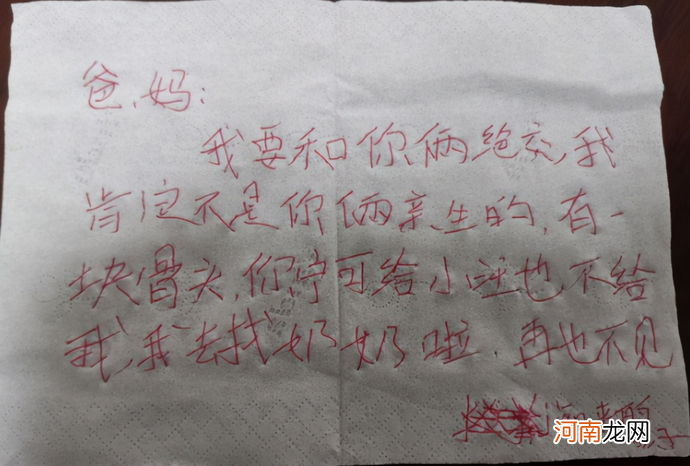 爸、妈:
我要和你俩绝交,我
肯定不是你俩亲生的,有一
块骨头,你宁可给小旺也不给
我,我去找奶奶啦.再也不见
河南龙网